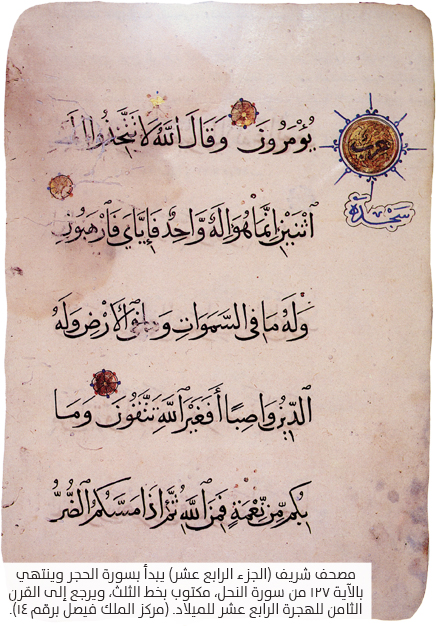 يُؤْمَرُونَ وَقَالَ اللَّهُ لَا تَتَّخِذُوا إِلَ
سجدة
اثْنَيْنِ إِنَّمَا هُوَ إِلَهٌ وَاحِدٌ فَإِيَّايَ فَارْهَبُونِ
وَلَهُ مَا فِي السَّمَوَاتِ وَالْأَرْضِ وَلَهُ
الدِّينُ وَاصِبًا أَفَغَيْرَ اللَّهِ تَتَّقُونَ وَمَا
بِكُم مِّن نِّعْمَةٍ فَمِنَ اللَّهِ ثُمَّ إِذَا مَسَّكُمُ الضُّرُّ
مصحف شريف (الجزء الرابع عشر) يبدأ بسورة الحجر وينتهي
بالآية ١٢٧ من سورة النحل، مكتوب بخط الثلث، ويرجع إلى القرن
الثامن للهجرة الرابع عشر للميلاد. (مركز الملك فيصل برقم ١٤).